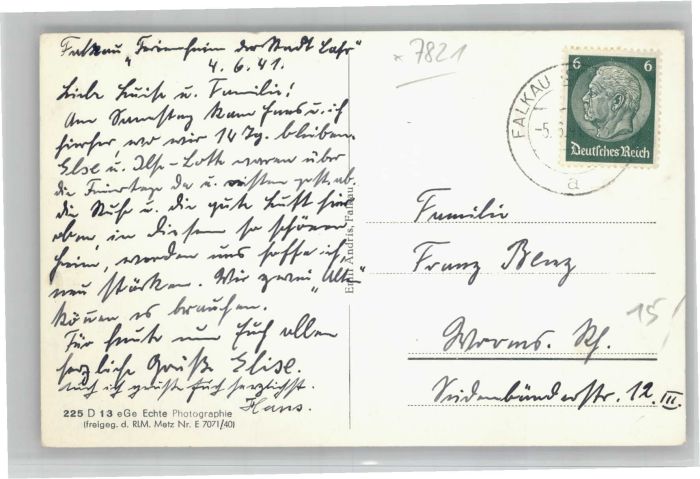 Falkau „Ferienheim der Stadt Lahr"
4.6.41.
Liebe Luise u. Familie!
Am Samstag kam Hans u. ich
hierher wo wir 14 Tg. bleiben.
Else u. Ilse-Lotte waren über
die Feiertage da u. reisten gest. ab.
die Ruhe u. die gute Luft hier
oben, in diesem so schönen
Heim, werden uns hoffe ich,
neu stärken. Wir zwei „Alte"
können es brauchen.
Für heute nun Euch allen
herzliche Grüße Elise.
Auch ich grüße Euch herzlichst.
Hans.
225 D 13 eGe Echte Photographie
(freigeg. d. RLM. Metz Nr. E 7071/40)
Emil Andris, Falkau
× 7821
FALKAU
-5.6.
a
6 6
Deutsches Reich
Familie
Franz Benz
Worms. Rh.
Südenbünderstr. 12. III.
15/